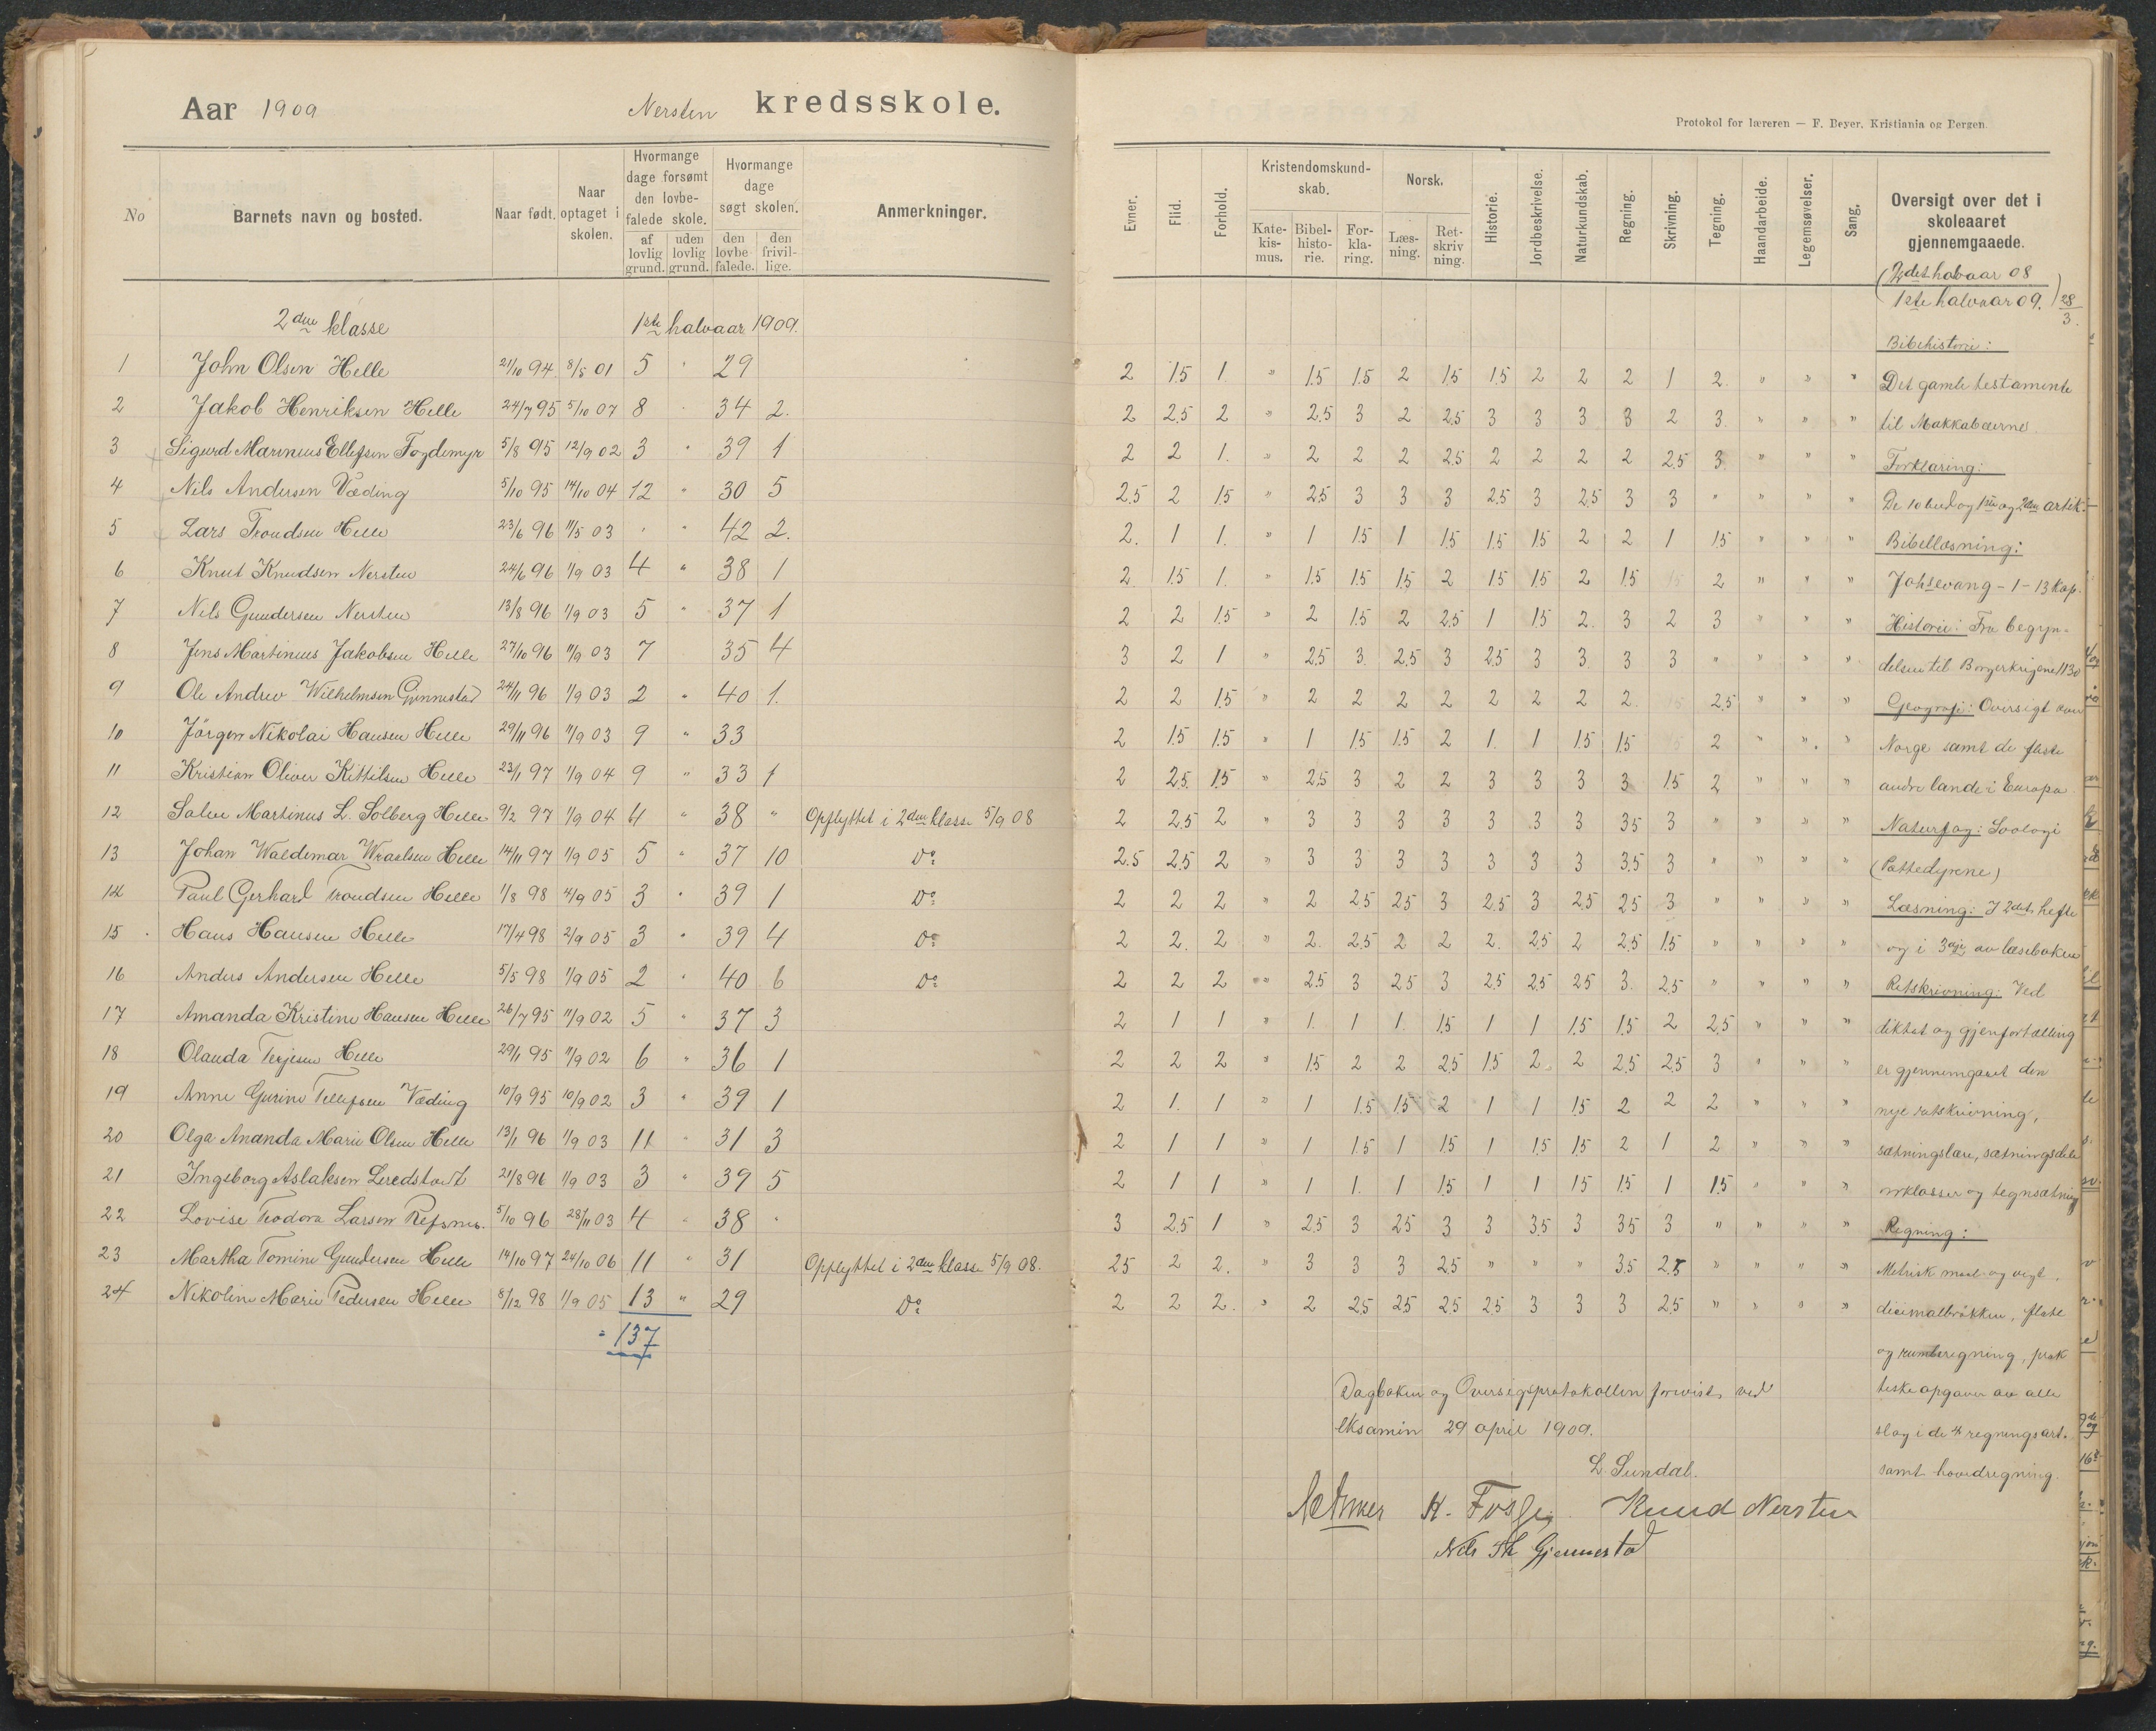 Aar 1909 Nersten kredsskole.
Protokol for læreren — F. Beyer, Kristiania og Bergen.
No Barnets navn og bosted. Naar født. Naar optaget i skolen. Hvormange dage forsømt den lovbefalede skole. af lovlig grund. uden lovlig grund. Hvormange dage søgt skolen. den lovbefalede. den frivillige. Anmerkninger.
Evner. Flid. Forhold. Kristendomskundskab. Katekismus. Bibelhistorie. Forklaring. Norsk. Læsning. Retskrivning. Historie. Jordbeskrivelse. Naturkundskab. Regning. Skrivning. Tegning. Haandarbeide. Legemsøvelser. Sang. Oversigt over det i skoleaaret gjennemgaaede.
2den klasse 1ste halvaar 1909.
1 John Olsen Helle 21/10 94 8/5 01 5 " 29
2 Jakob Henriksen Helle 24/7 95 5/10 07 8 " 34 2.
3 Sigurd Marinius Ellefsen Fogdemyr 5/8 95 12/9 02 3 " 39 1
4 Nils Andersen Væding 5/10 95 14/10 04 12 " 30 5
5 Lars Trondsen Helle 23/6 96 11/5 03 " " 42 2.
6 Knut Knudsen Nersten 24/6 96 1/9 03 4 " 38 1
7 Nils Gundersen Nersten 13/8 96 1/9 03 5 " 37 1
8 Jens Martinius Jakobsen Helle 27/10 96 11/9 03 7 35 4
9 Ole Andrev Wilhelmsen Gjennestad 24/11 96 1/9 03 2 " 40 1.
10 Jörgen Nikolai Hansen Helle 29/11 96 11/9 03 9 " 33
11 Kristian Oliver Kittilsen Helle 23/1 97 1/9 04 9 " 33 1
12 Salve Martinus L. Solberg Helle 9/2 97 1/9 04 4 " 38 " Opflyttet i 2den klasse 5/9 08
13 Johan Waldemar Wraalsen Helle 14/11 97 1/9 05 5 " 37 10 Do
14 Paul Gerhard Trondsen Helle 1/8 98 4/9 05 3 " 39 1 Do
15 Hans Hansen Helle 17/4 98 2/9 05 3 " 39 4 Do
16 Anders Andersen Helle 5/5 98 1/9 05 2 " 40 6 Do
17 Amanda Kristine Hansen Helle 26/7 95 11/9 02 5 " 37 3
18 Olanda Terjesen Helle 29/1 95 11/9 02 6 " 36 1
19 Anne Gurine Tellefsen Væding 10/9 95 10/9 02 3 " 39 1
20 Olga Ananda Marie Olsen Helle 13/1 96 1/9 03 11 " 31 3
21 Ingeborg Aslaksen Leredstvedt 21/8 96 1/9 03 3 " 39 5
22 Lovise Teodora Larsen Refsnes. 5/10 96 28/11 03 4 " 38 "
23 Martha Tomine Gundersen Helle 14/10 97 24/10 06 11 " 31 Opflyttet i 2den klasse 5/9 08.
24 Nikoline Marie Pedersen Helle 8/12 98 1/9 05 13 " 29 Do
= 137
2 1.5 1 " 1.5 1.5 2 1.5 1.5 2 2 2 1 2 " " "
2 2.5 2 " 2.5 3 2 2.5 3 3 3 3 2 3 " " "
2 2 1. " 2 2 2 2.5 2 2 2 2 2.5 3 " " "
2.5 2 1.5 " 2.5 3 3 3 2.5 3 2.5 3 3 " " " "
2. 1 1. " 1 1.5 1 1.5 1.5 1.5 2 2 1 1.5 " " "
2 1.5 1. " 1.5 1.5 1.5 2 1.5 1.5 2 1.5 1.5 2 " " "
2 2 1.5 " 2 1.5 2 2.5 1 1.5 2. 3 2 3 " " "
3 2 1 " 2.5 3. 2.5 3 2.5 3 3. 3 3 " " " "
2 2 1.5 " 2 2 2 2 2 2 2 2. 1.5 2.5 " " "
2 1.5 1.5 " 1 1.5 1.5 2 1. 1 1.5 1.5 1.5 2 " " "
2 2.5 1.5 " 2.5 3 2 2 3 3 3 3 1.5 2 " " "
2 2.5 2 " 3 3 3 3 3 3 3 3.5 3 " " " "
2.5 2.5 2 " 3 3 3 3 3 3 3 3.5 3 " " " "
2 2 2 " 2 2.5 2.5 3 2.5 3 2.5 2.5 3 " " " "
2 2. 2 " 2. 2.5 2 2 2. 2.5 2 2.5 1.5 " " " "
2 2 2 " 2.5 3 2.5 3 2.5 2.5 2.5 3. 2.5 " " " "
2 1 1 " 1. 1 1. 1.5 1 1 1.5 1.5 2 2.5 " " "
2 2 2 " 1.5 2 2 2.5 1.5 2 2 2.5 2.5 3 " " "
2 1. 1 " 1 1.5 1.5 2 1 1 1.5 2 2 2 " " "
2 1 1 " 1 1.5 1 1.5 1 1.5 1.5 2 1 2 " " "
2 1 1 " 1 1. 1 1.5 1 1 1.5 1.5 1 1.5 " " "
3 2.5 1 " 2.5 3 2.5 3 3 3.5 3 3.5 3 " " " "
2.5 2 2. " 3 3 3 2.5 " " " 3.5 2.5 " " " "
2 2 2. " 2 2.5 2.5 2.5 2.5 3 3 3 2.5 " " " "
(2det halvaar 08
1ste halvaar 09.) 28/3.
Bibehistorie:
Det gamle testamente
til Makkabæerne
Forklaring:
De 10 bud og 1ste og 2den artik.
Bibellæsning:
Johsevang - 1 - 13 kap.
Historie: Fra begyn-
delsen til Borgerkrigene 1130
Geografi: Oversigt over
Norge samt de fleste
andre lande i Europa
Naturfag: Zoologi
(Pattedyrene)
Læsning: I 2det hefte
og i 3dje av læseboken
Retskrivning: Ved
diktat og gjenfortælling
er gjennemgaaet den
nye retskrivning,
sætningslære, sætningsdele
ordklasser og tegnsætning
Regning:
Metrisk maal og vegt,
decimalbrökken, flate
og rumberegning, prak
tiske opgaver av alle
slag i de 4 regningsart.
samt hovedregning.
Dagboken og Oversigsprotokollen forevist ved
eksamen 29 april 1909.
L. Sundal.
K. Fosse Knud Nersten
Nils Th Gjennestad